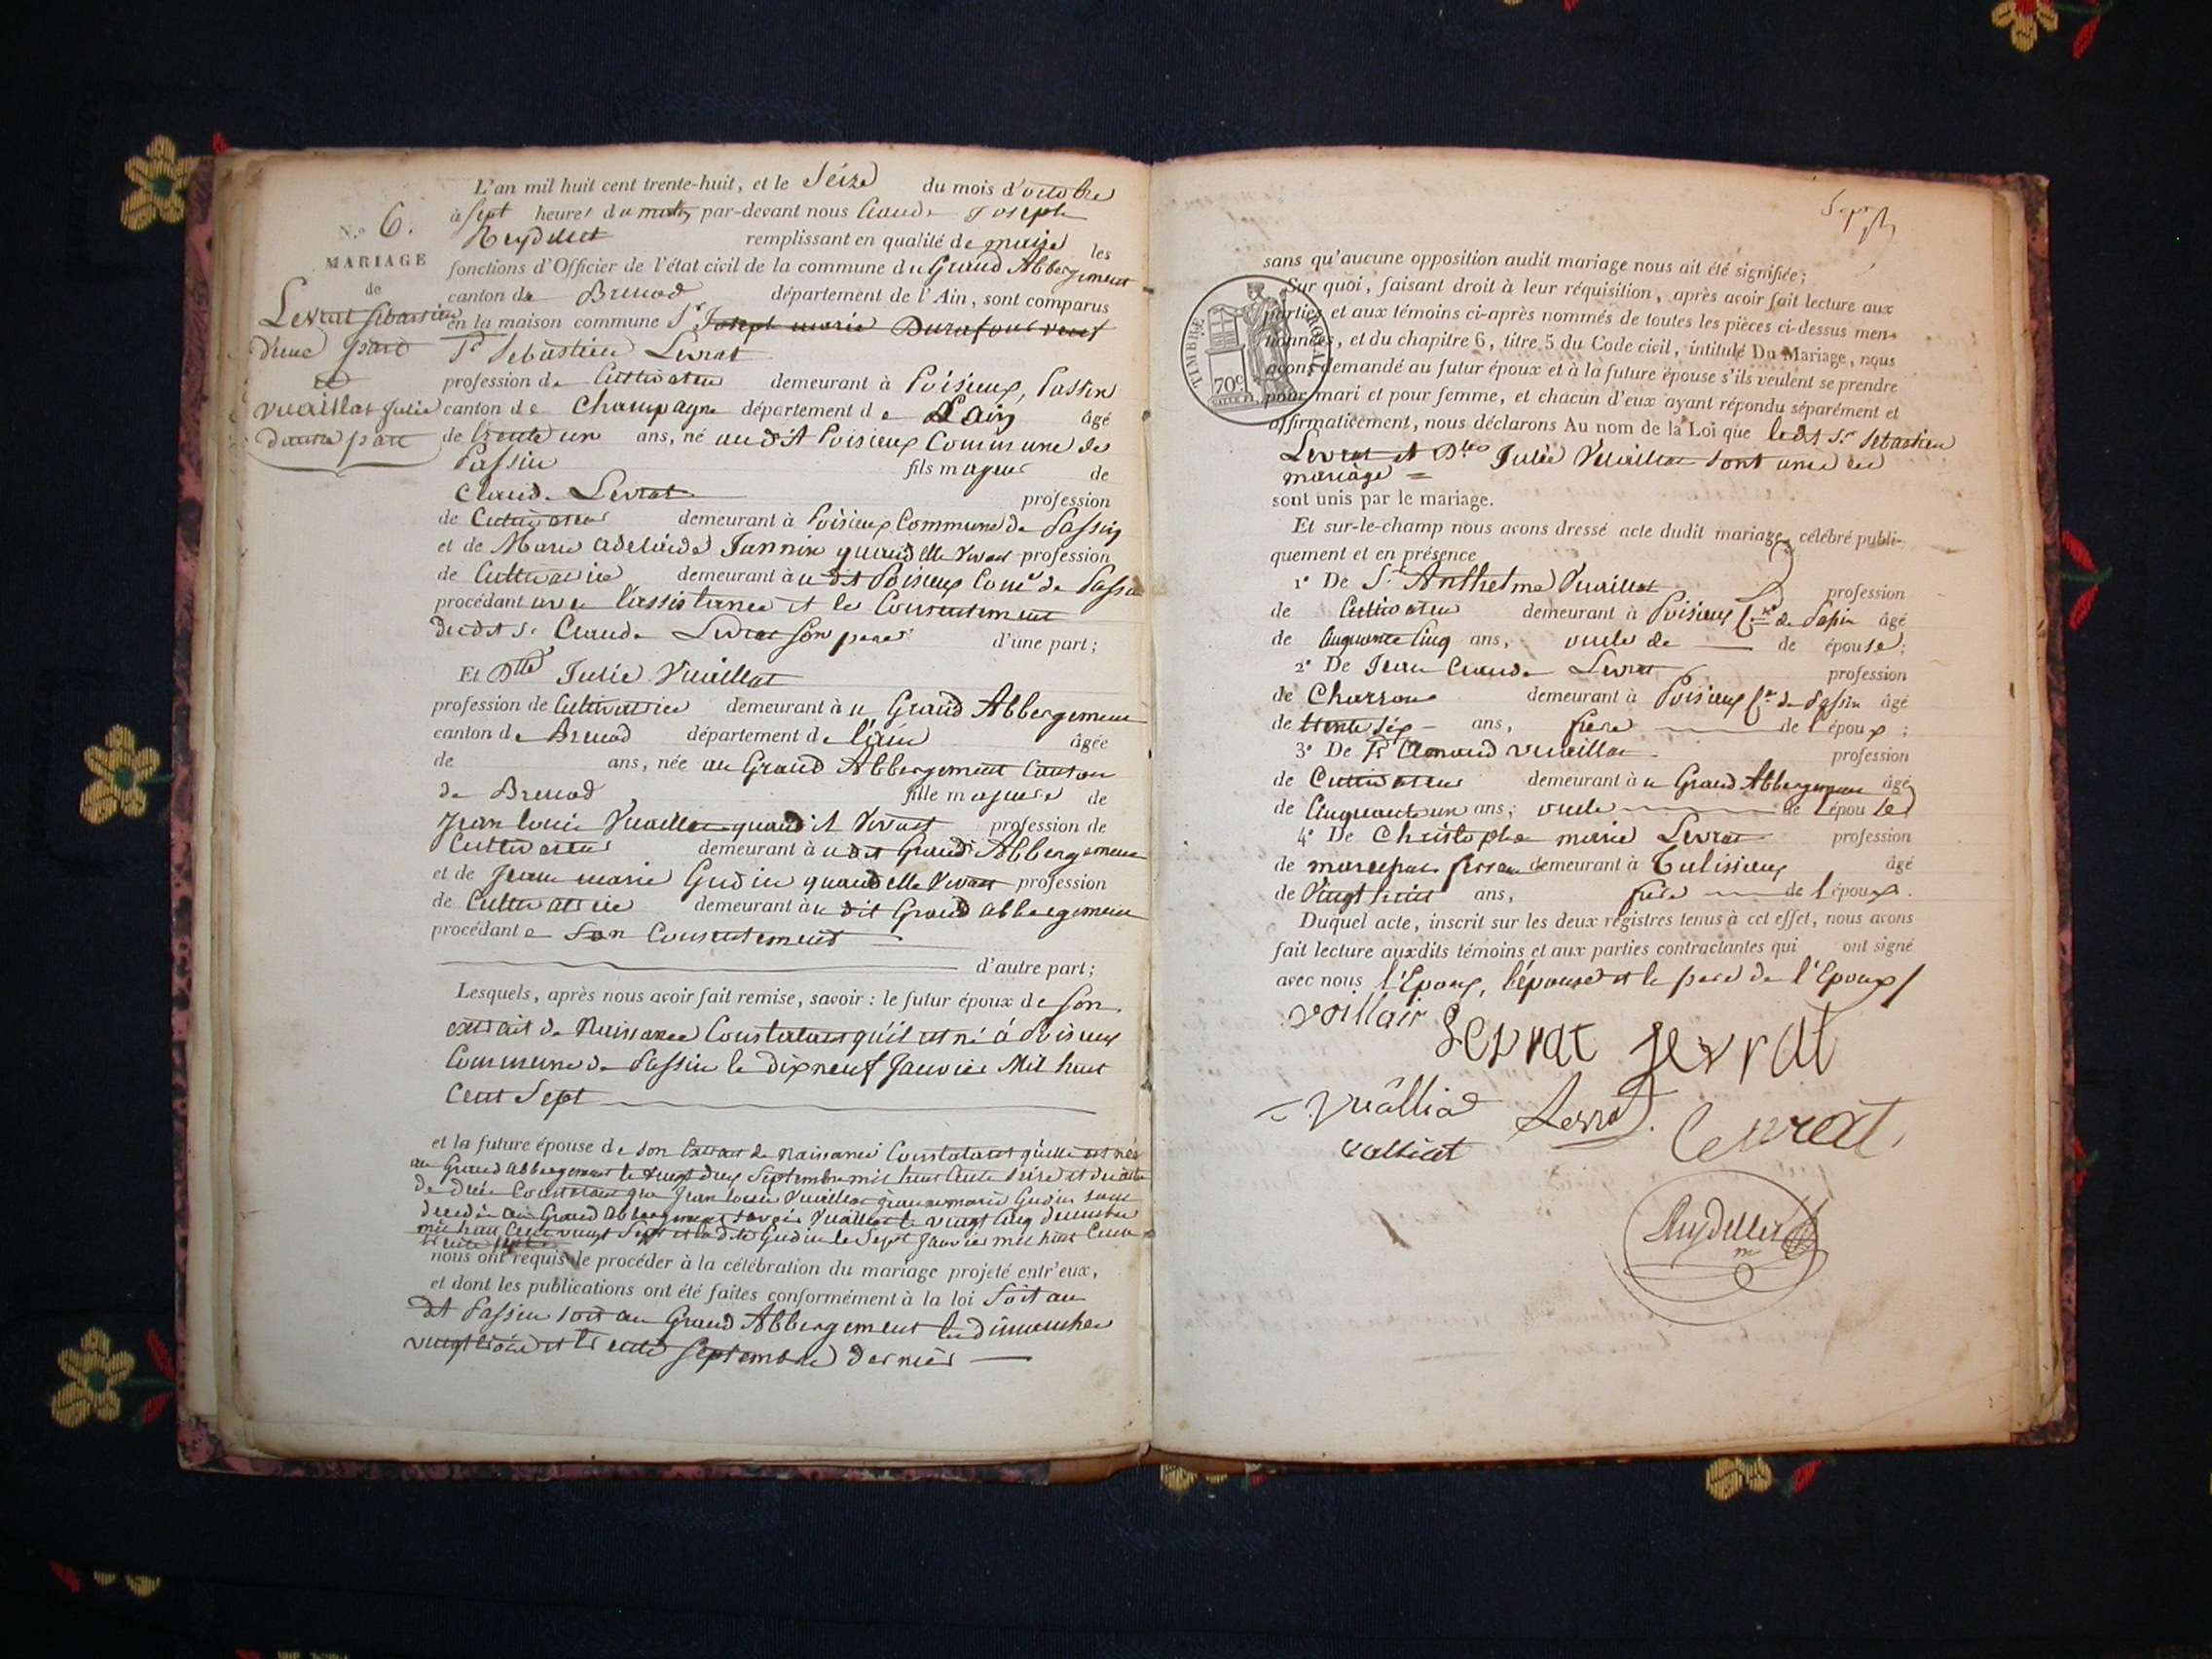 L'an mil huit cent trente-huit, et le Seize du mois d'octobre
à sept heures du matin par-devant nous Claude Joseph
Reydellet remplissant en qualité de maire les
fonctions d'Officier de l'état civil de la commune du Grand Abbergement
canton de Brenod département de l'Ain, sont comparus
en la maison commune Sr Joseph marie Durafour veuf
Sr Sebastien Levrat
profession de Cultivateur demeurant à Poisieux, Passin
canton de Champagne département de Lain âgé
de trente un ans, né au dit Poisieux Commune de
Passin fils majeur de
Claude Levrat profession
de Cultivateur demeurant à Poisieux Commune de Passin
et de Marie adelaide Jannin quand elle vivait profession
de Cultivatrice demeurant au dit Poisieux Comne de Passin
procédant avec l'assistance et le Consentement
dudit Sr Claude Levrat son pere d'une part;
N.o 6.
MARIAGE
de
Levrat Sébastien
d'une part
et
Vuaillat Julie
dautre part
Et Dlle Julie Vuaillat
profession de Cultivatrice demeurant au Grand Abbergement
canton de Brenod département de l'ain âgée
de ans, née au Grand Abbergement Canton
de Brenod fille majeure de
Jean Louis Vuaillat quand il vivait profession de
Cultivateur demeurant au dit Grand Abbergement
et de Jeanne marie Gudin quand elle vivait profession
de Cultivatrice demeurant au dit Grand abbergement
procédant e son Consentement
d'autre part;
Lesquels, après nous avoir fait remise, savoir : le futur époux de son
extrait de Naissance Constatant qu'il est né à Poisieux
Commune de Passin le dix neuf Janvier Mil huit
Cent Sept
et la future épouse de son Extrait de naissance Constatant qu'elle est née
au Grand abbergement le vingt deux Septembre mil huit Cent seize et de acte
de décès Constatant que Jean Louis Vuaillat Jeanne marie Gudin sont
decedés au Grand Abbergement savoir Vuaillat le vingt Cinq decembre
mil huit Cent vingt Sept et la dite Gudin le Sept Janvier mil huit Cent
trente sept
nous ont requis de procéder à la célébration du mariage projeté entr'eux,
et dont les publications ont été faites conformément à la loi soit au
dit Passin soit au Grand Abbergement les dimanches
vingt trois et trente Septembre dernier
sept
sans qu'aucune opposition audit mariage nous ait été signifiée;
Sur quoi, faisant droit à leur réquisition, après avoir fait lecture aux
parties et aux témoins ci-après nommés de toutes les pièces ci-dessus men-
tionnées, et du chapitre 6, titre 5 du Code civil, intitulé Du Mariage, nous
avons demandé au futur époux et à la future épouse s'ils veulent se prendre
pour mari et pour femme, et chacun d'eux ayant répondu séparément et
affirmativement, nous déclarons Au nom de la Loi que ledit Sr Sebastien
Levrat et Dlle Julie Vuaillat sont unis en
mariage =
sont unis par le mariage.
TIMBRE ROYAL
70c
Et sur-le-champ nous avons dressé acte dudit mariage, célébré publi-
quement et en présence
1o De Sr Anthelme Vuaillat profession
de Cultivateur demeurant à Poisieux Cne de Passin âgé
de Cinquante Cinq ans, oncle de de épouse;
2o De Jean Claude Levrat profession
de Charron demeurant à Poisieux Cne de Passin âgé
de trente six ans, frère de l'époux;
3o De Vuaillat profession
de Cultivateur demeurant au Grand Abbergement âgé
de Cinquante un ans; oncle de lépouse
4o De Christophe marie Levrat profession
de demeurant à Talissieux âgé
de Vingt huit ans, frère de l époux.
Duquel acte, inscrit sur les deux registres tenus à cet effet, nous avons
fait lecture auxdits témoins et aux parties contractantes qui ont signé
avec nous l'Epoux, l'épouse et le pere de l'Epoux
voillair Levrat Levrat
Vuâlliat Levrat Levrat
valliat
Reydellet